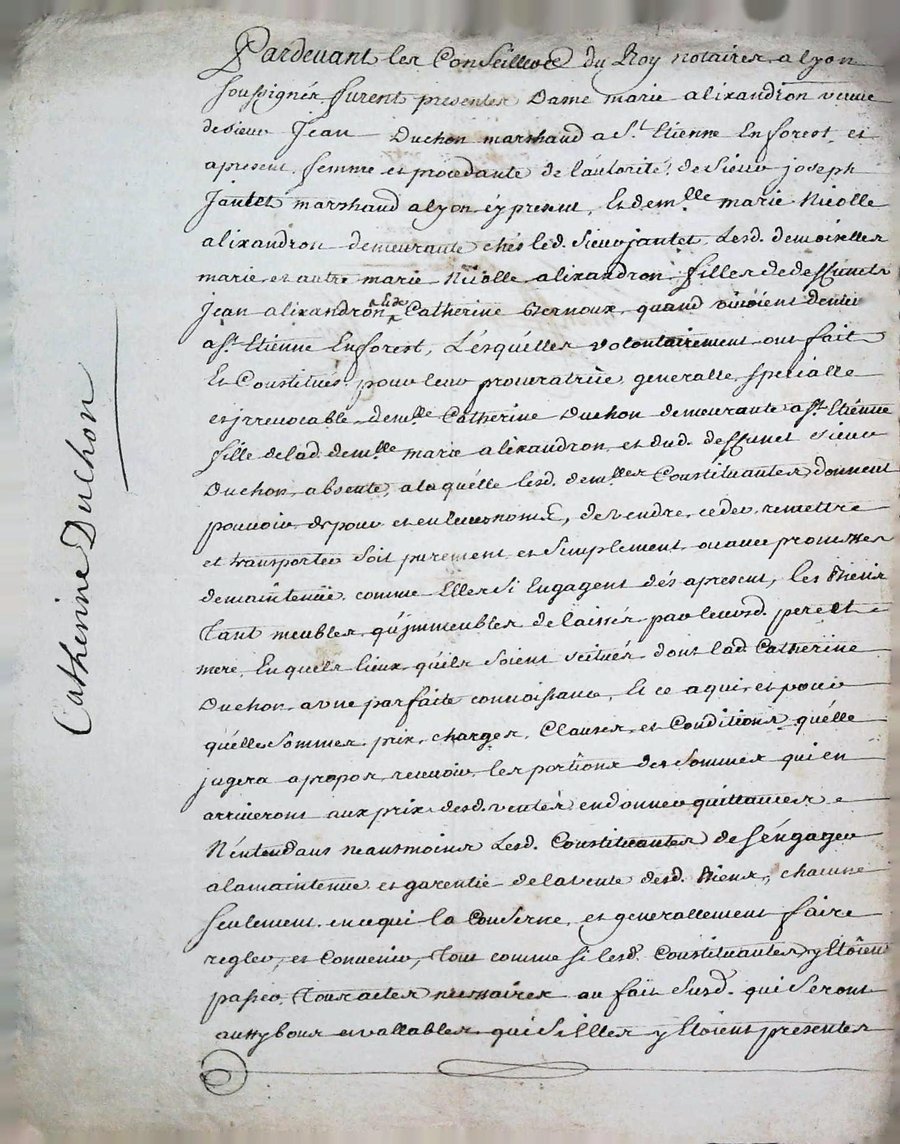 Catherine Duchon
Pardevant les Conseillers du Roy notaires a lyon
soussignés furent presentes Dame marie alixandron veuve
de sieur Jean Duchon marchand a St. Etienne En forest, et
apresent femme et procedante de l'autorité de sieur joseph
Jantet marchand a lyon cy present, Et demlle marie Nicolle
alixandron demeurante chés led. sieur jantet, Lesd. demoiselles
marie, et autre marie Nicolle alixandron filles de deffuncts
Jean alixandron Catherine quand vivoient
a St. Etienne En forest, Lésquélles volontairement ont fait
Et Constitués pour leur procuratrice generalle specialle
et jrrevocable demlle Catherine Duchon demeurante a St. Etiénne
fille de lad. demlle marie alixandron, et dud. deffunct sieur
Duchon, absente, a laquélle lesd. demlles Constituantes, donnent
pouvoir de pour et en leur nom, de vendre, ceder, remettre
et transporter soit purement et simplement, ou avec promesses
de maintenüe, comme Elles si Engagent dés apresent, les Biens
Tant meubles, qu'jmmeubles delaissés par leursd. pere Et
mere, En quels lieux, qu'ils soient scitués, dont lad. Catherine
Duchon, a une parfaite connoissance, Et ce a qui, et pour
quélles sommes, prix, charges, Clauses, et Conditions qu'élle
jugera apropos, recevoir les portions des sommes qui en
arriveront aux prix desd. ventes, en donner quittances
N'entendans neantmoins Lesd. Constituantes de s'éngager
a la maintenüe et garentie de la vente desd. Biens, chacune
seulement en ce qui la Conserne, et generallement faire
regler, et Convenir, Tout comme si lesd. Constituantes y Etoient
passer Tous actes necessaires au fait susd. qui seront
aussy bons et vallables, que si Elles y Etoient presentes